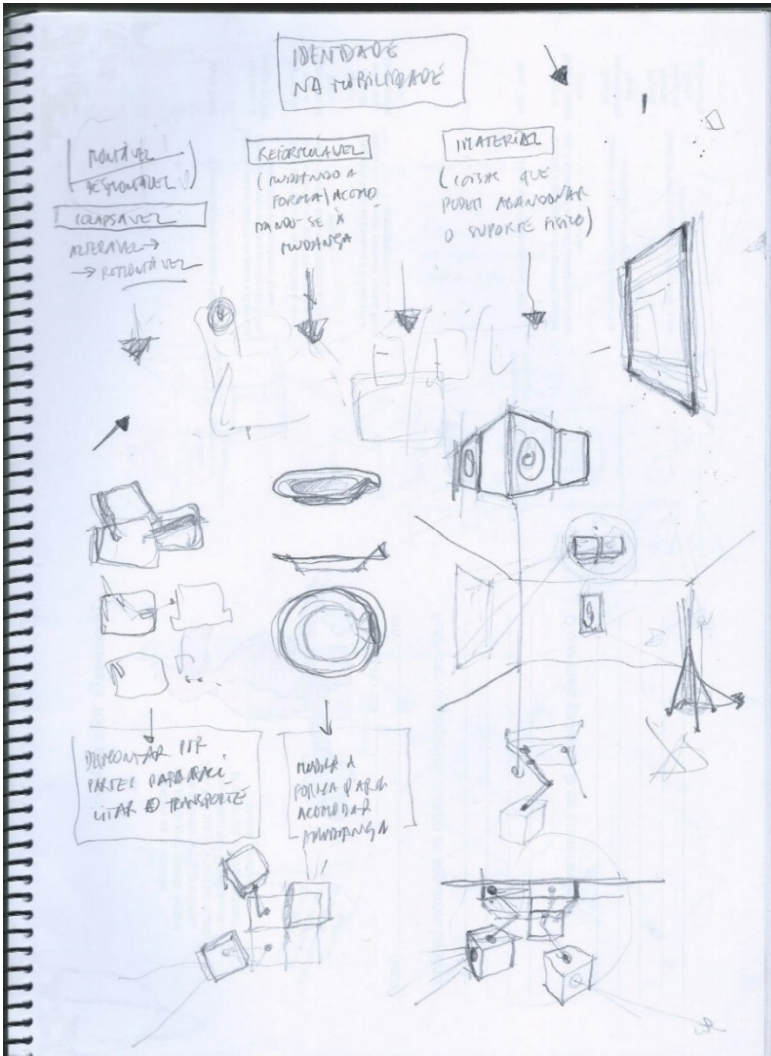 IDENTIDADE
NA MOBILIDADE
MONTÁVEL
DESMONTÁVEL
COLAPSÁVEL
ALTERÁVEL →
→ REMONTÁVEL
REFORMULÁVEL
(MUDANDO A
FORMA/ACOMO
DANDO-SE À
MUDANÇA
IMATERIAL
(COISAS QUE
PODEM ABANDONAR
O SUPORTE FÍSICO)
DESMONTAR POR
PARTES PARA FACI_
LITAR O TRANSPORTE
MUDAR A
FORMA PARA
ACOMODAR
MUDANÇA